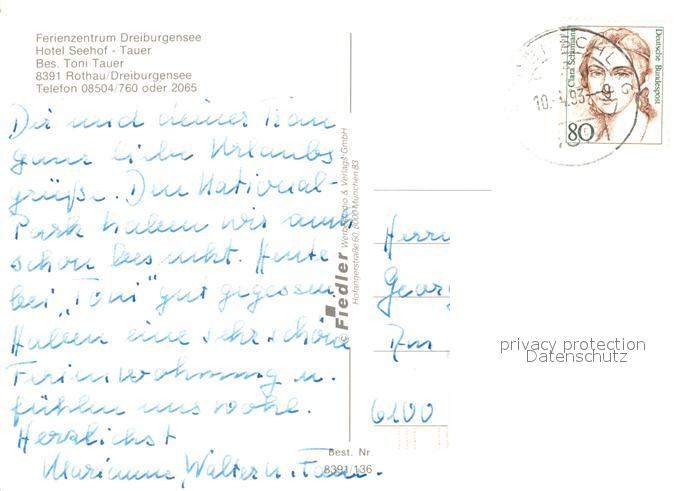 Ferienzentrum Dreiburgensee
Hotel Seehof - Tauer
Bes. Toni Tauer
8391 Rothau/Dreiburgensee
Telefon 08504/760 oder 2065
Dir und deiner Frau
ganz liebe Urlaubs
grüße. Den National-
Park haben wir auch
schon besucht. Heute
bei "Toni" gut gegessen.
Haben eine sehr schöne
Ferienwohnung u.
fühlen uns wohl.
Herzlichst
Marianne, Walter u. Fam.
© Fiedler Werbestudio & Verlags-GmbH
Hofangerstraße 60, 8000 München 83
Best. Nr.
8391/136
Clara Schumann
Deutsche Bundespost
80
10.-4.93-9
Herrn
Georg
Am
6100
privacy protection
Datenschutz